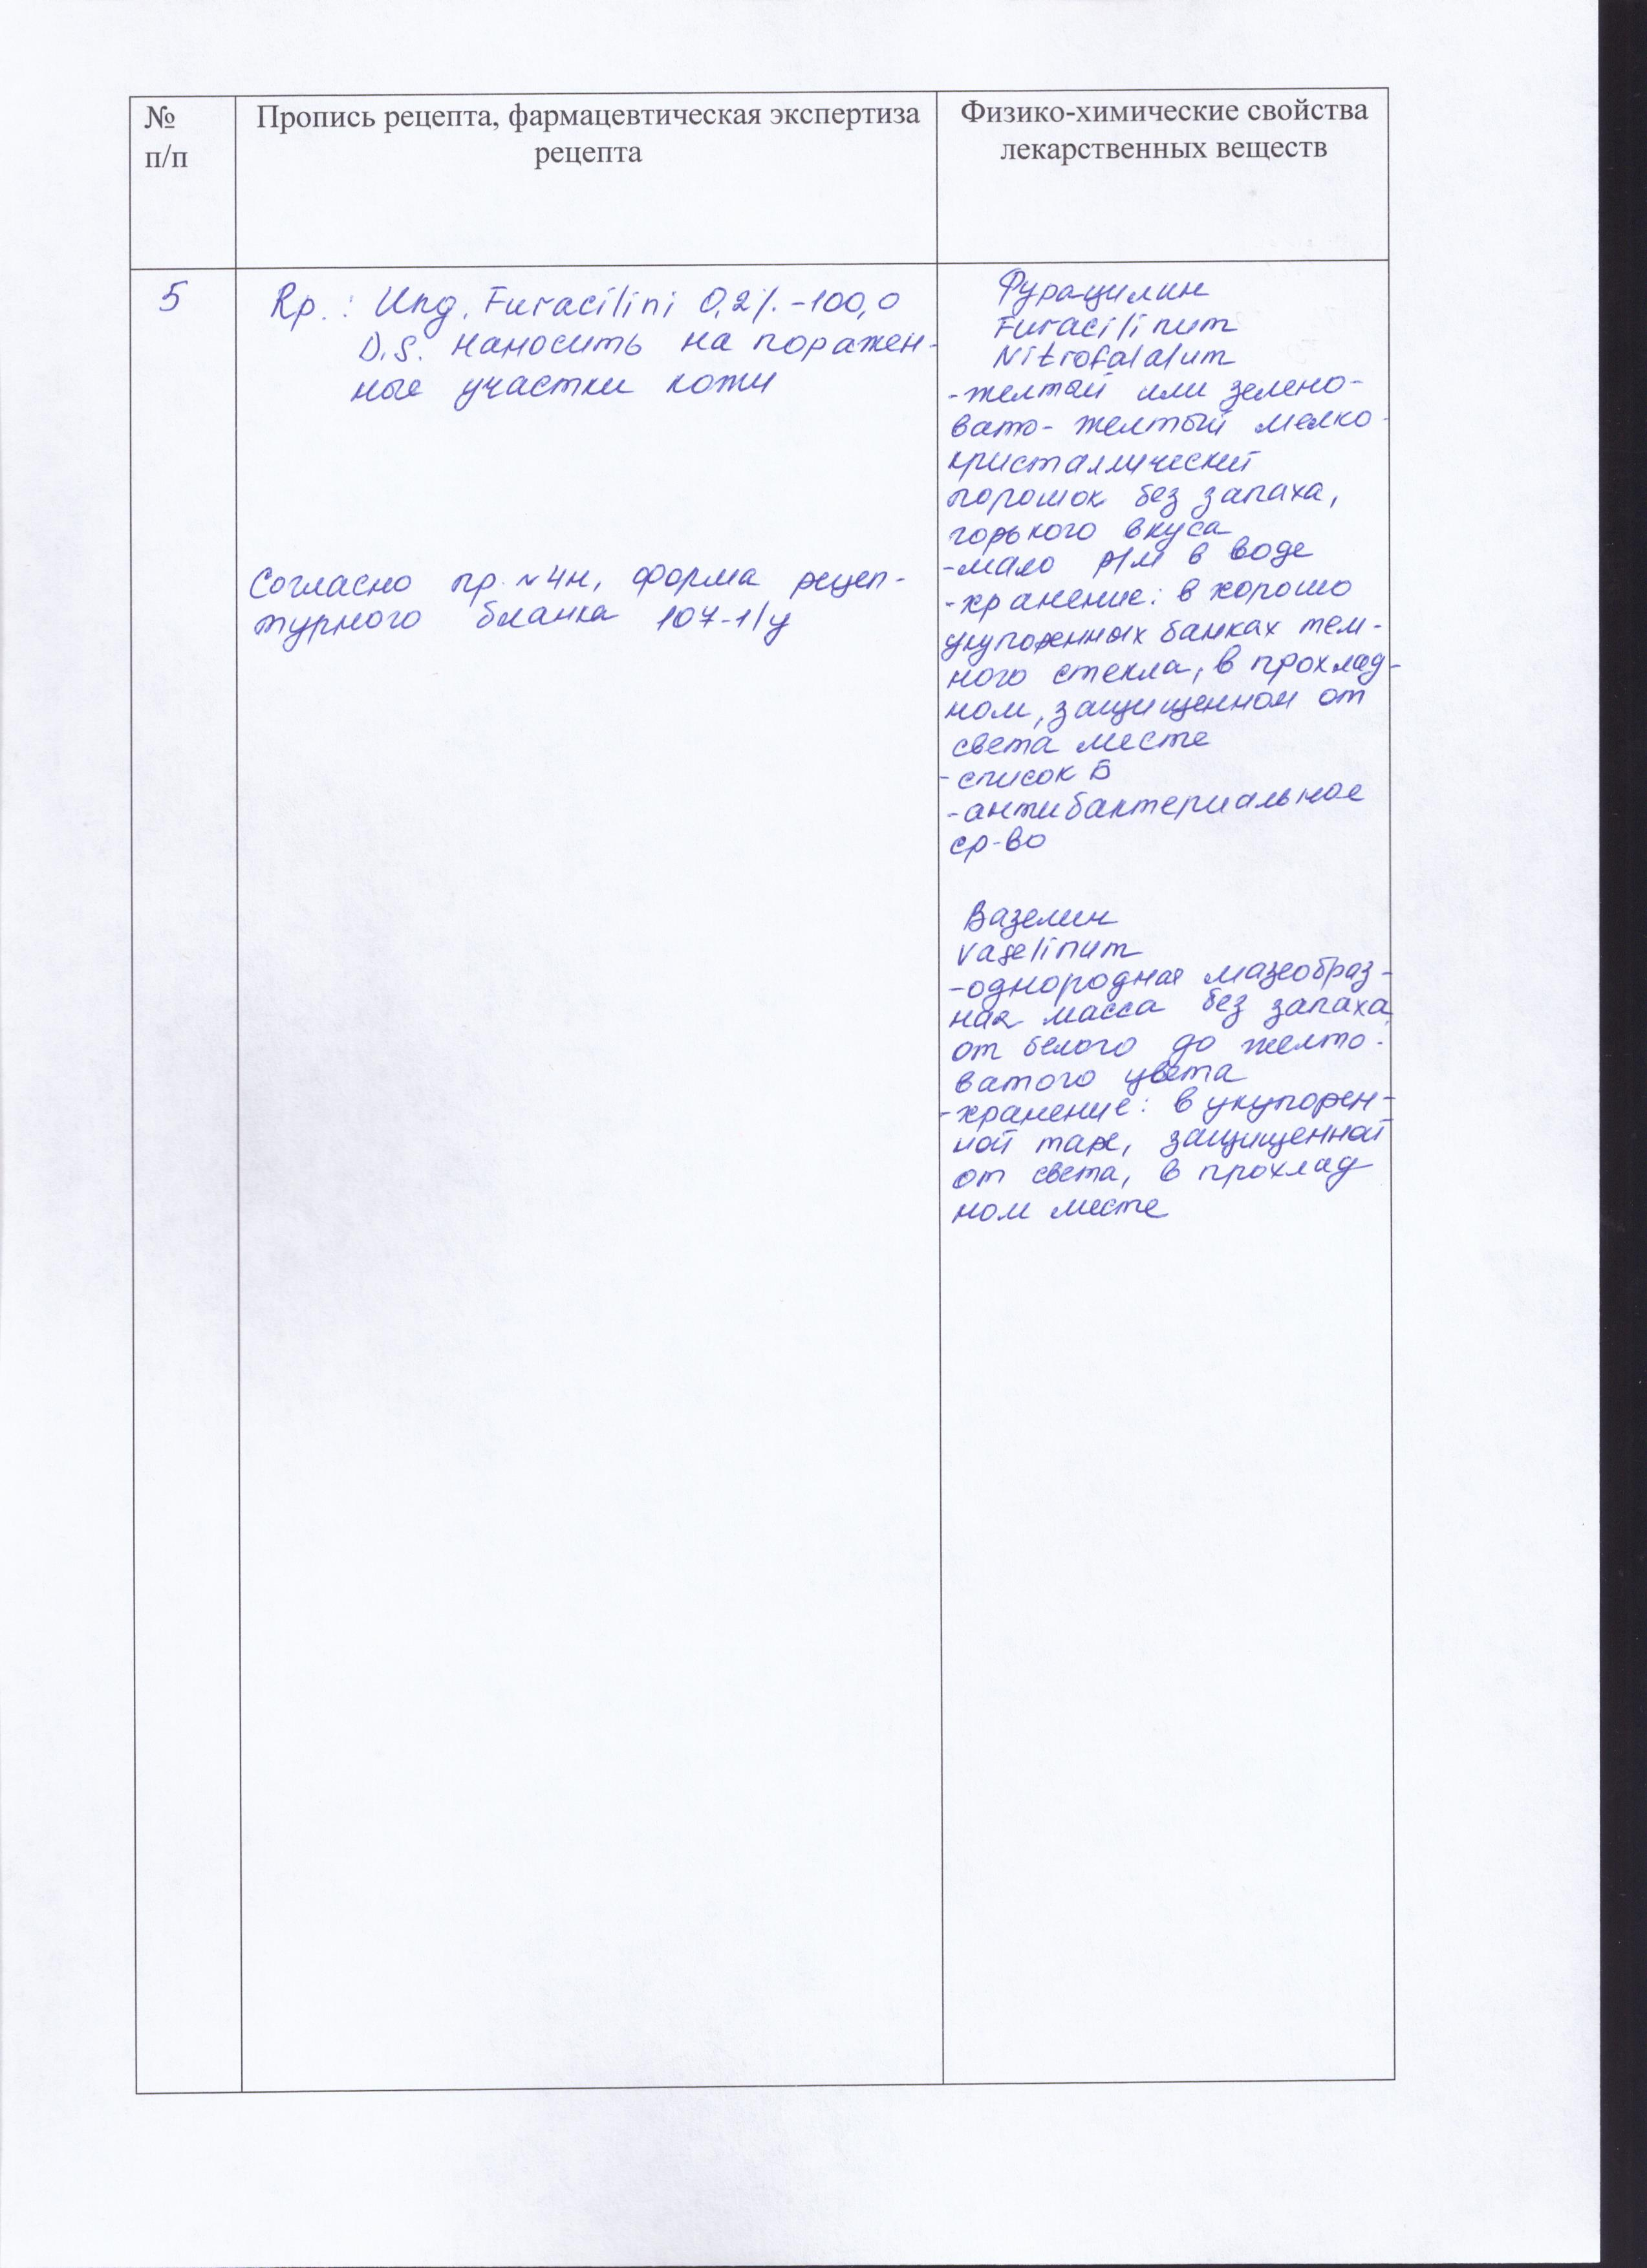 №
п/п
Пропись рецепта, фармацевтическая экспертиза
рецепта
Физико-химические свойства
лекарственных веществ
5
Rp.: Ung. Furacilini 0,2%-100,0
D.S. Наносить на поражен-
ные участки кожи
Согласно пр. №4н, форма рецеп-
турного бланка 107-1/у
Фурацилин
Furacilinum
Nitrofalalum
-желтый или зелено-
вато-желтый мелко-
кристаллический
порошок без запаха,
горького вкуса
-мало р/м в воде
-хранение: в хорошо
укупоренных банках тем-
ного стекла, в прохлад-
ном, защищенном от
света месте
-список Б
-антибактериальное
ср-во
Вазелин
Vaselinum
-однородная мазеобраз-
ная масса без запаха
от белого до желто-
ватого цвета
-хранение: в укупорен-
ной таре, защищенной
от света, в прохлад
ном месте